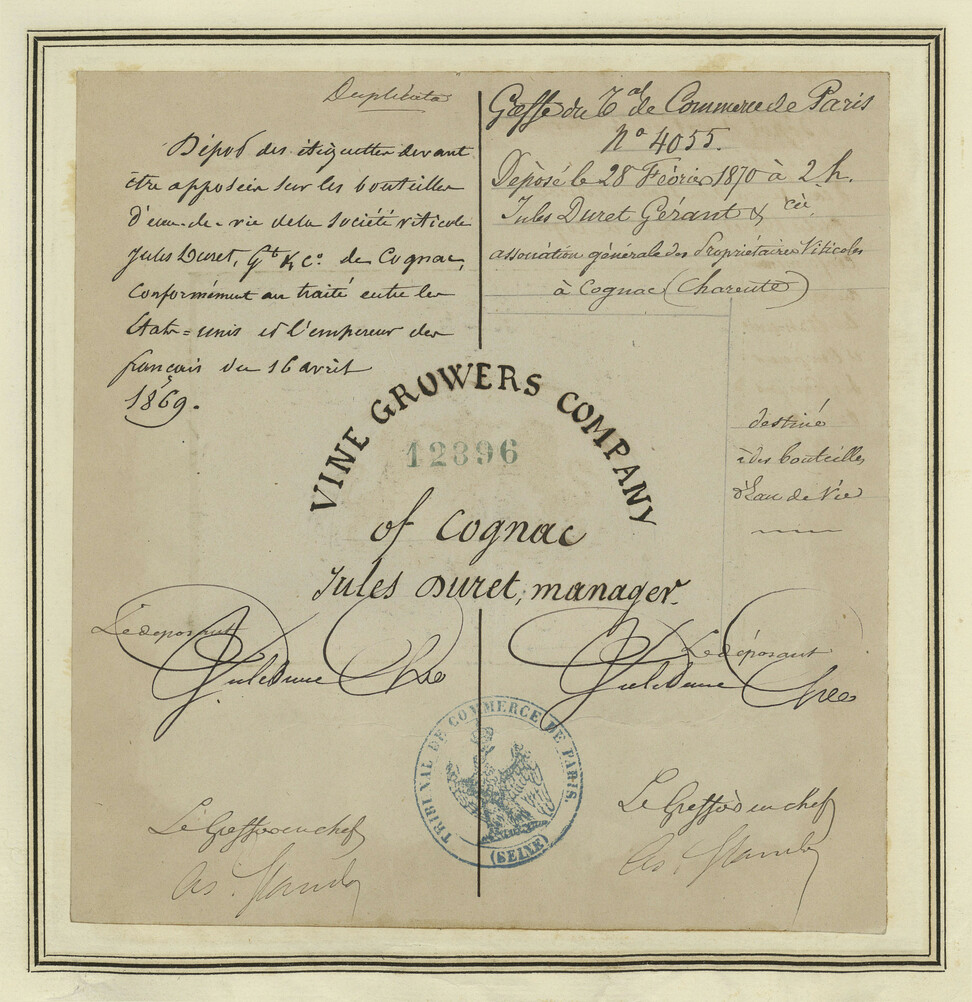 Duplicata
Dépot des étiquettes devant
être apposées sur les bouteilles
d'eau-de-vie de la Société viticole
Jules Duret, Gt & Co. de Cognac,
Conformément au traité entre les
États=unis et l'empereur des
français du 16 avril
1869.
Greffe du Tal de Commerce de Paris
No 4055.
Déposé le 28 Février 1870 à 2 h.
Jules Duret Gérant & Cie,
association générale des Propriétaires Viticoles
à Cognac (Charente)
destiné
à des bouteilles
d'Eau de Vie
VINE GROWERS COMPANY
12396
of Cognac
Jules Duret, manager.
Le déposant
Le déposant
TRIBUNAL DE COMMERCE DE PARIS.
(SEINE)
Le Greffier en chef
Le Greffier en chef